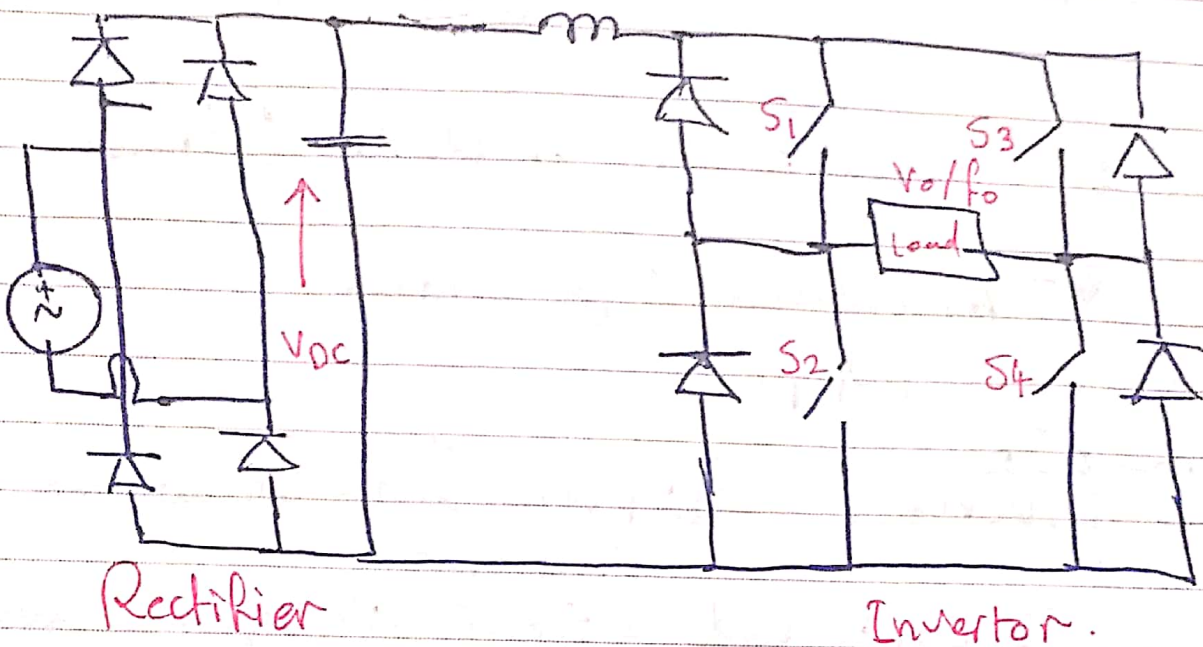 S1
S3
Vo/fo
Load
VDC
S2
S4
Rectifier
Invertor.